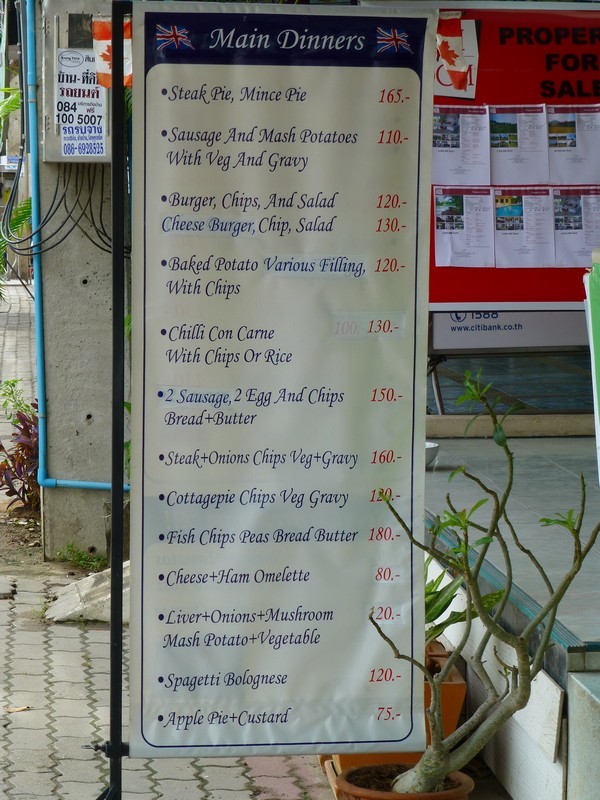 Main Dinners
•Steak Pie, Mince Pie 165.-
•Sausage And Mash Potatoes 110.-
With Veg And Gravy
•Burger, Chips, And Salad 120.-
Cheese Burger, Chip, Salad 130.-
•Baked Potato Various Filling, 120.-
With Chips
•Chilli Con Carne 100 130.-
With Chips Or Rice
•2 Sausage, 2 Egg And Chips 150.-
Bread+Butter
•Steak+Onions Chips Veg+Gravy 160.-
•Cottagepie Chips Veg Gravy 120.-
•Fish Chips Peas Bread Butter 180.-
•Cheese+Ham Omelette 80.-
•Liver+Onions+Mushroom 120.-
Mash Potato+Vegetable
•Spagetti Bolognese 120.-
•Apple Pie+Custard 75.-
บ้าน-ที่ดิน
รถยนต์
084
100 5007
รถรับจ้าง
086-6928525
PROPER
FOR
SALE
1588
www.citibank.co.th